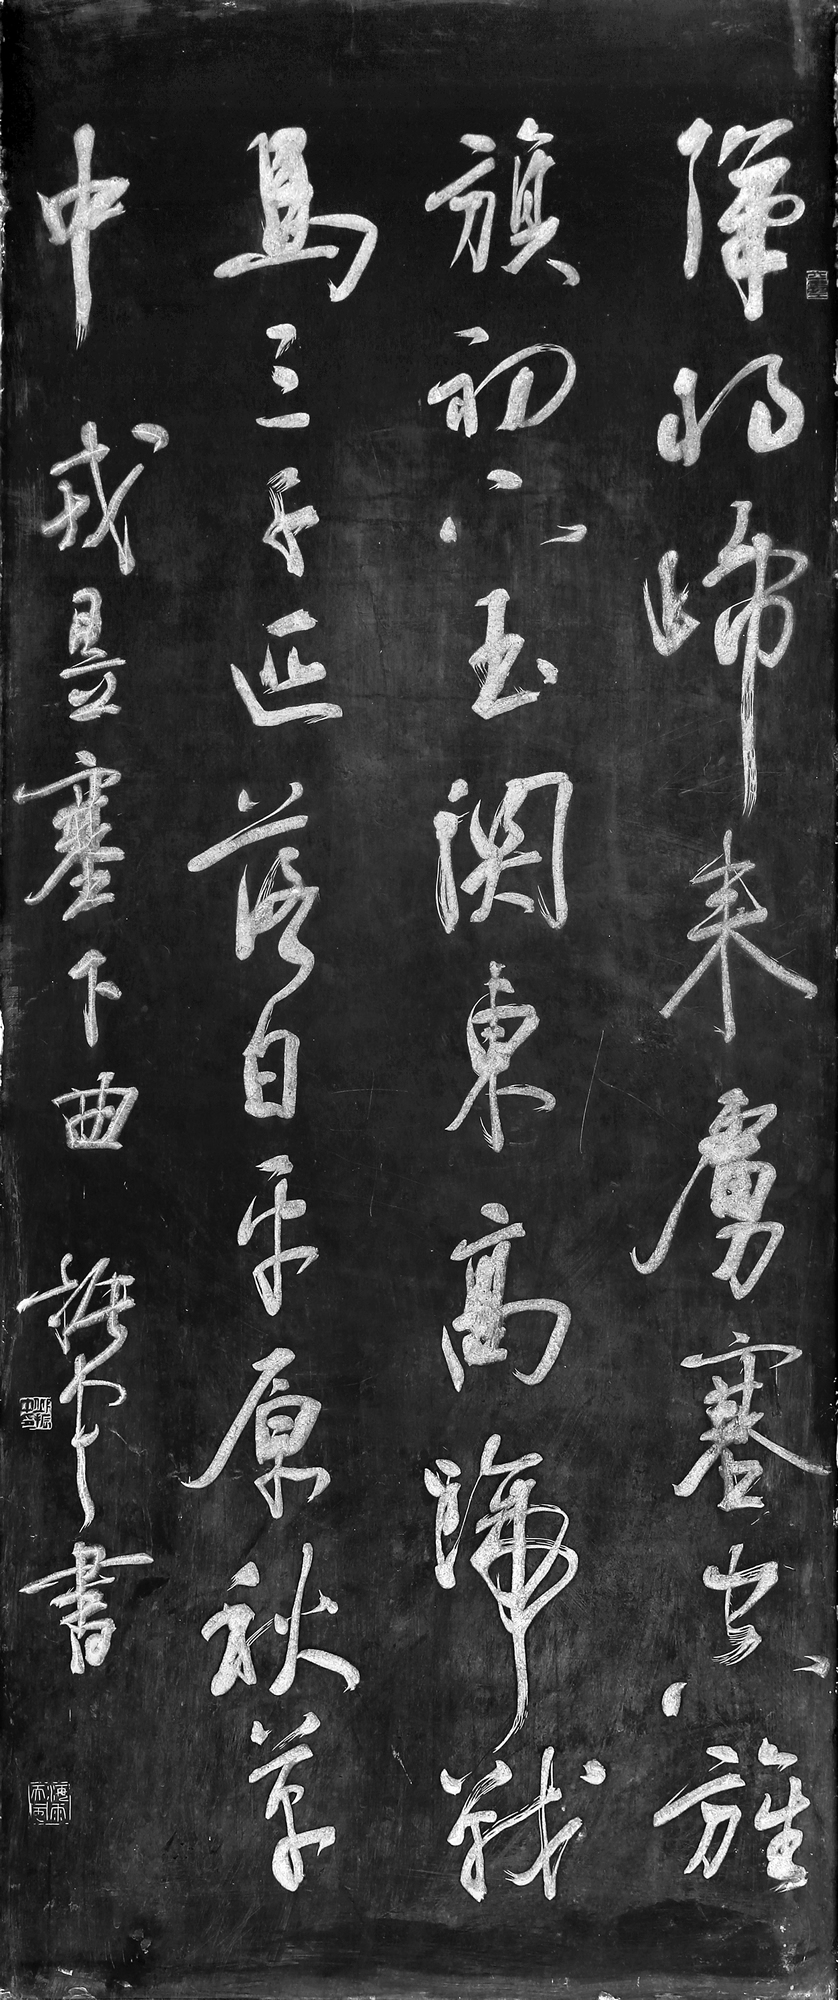 漢將歸来虜塞空旌
旗初下玉関東高蹄戰
馬三千匹落日平原秋草
中 戎昱塞下曲 振中書